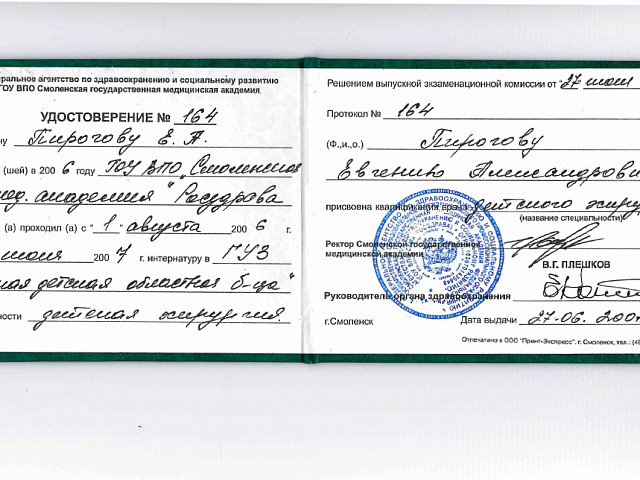 еральное агентство по здравоохранению и социальному развитию
ГОУ ВПО Смоленская государственная медицинская академия.
УДОСТОВЕРЕНИЕ № 164
ну Пирогову Е. А.
(шей) в 2006 году ГОУ ВПО „Смоленская
мед. академия" Росздрава
(а) проходил (а) с "1" августа 2006 г.
июня 2007 г. интернатуру в ГУЗ
ная детская областная б-ца"
ности детская хирургия.
Решением выпускной экзаменационной комиссии от "27 июня
Протокол № 164
(Ф.,и.,о.) Пирогову
Евгению Александрови
присвоена квалификация врача детского хирур
(название специальности)
Ректор Смоленской государственной
медицинской академии
В.Г. ПЛЕШКОВ
Руководитель органа здравоохранения
г.Смоленск Дата выдачи 27.06.200
Отпечатано в ООО "Принт-Экспресс", г. Смоленск, тел.: (48